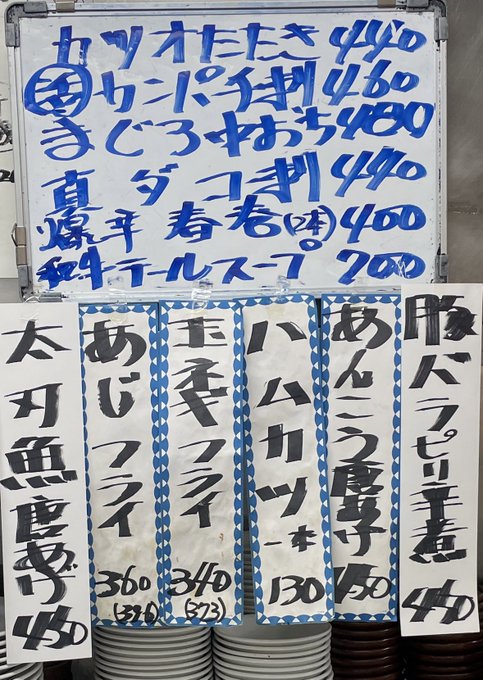 カツオたたき 440
活カンパチ刺 460
まぐろ中おち 480
真ダコ刺 440
爆辛春巻(2本) 400
和牛テールスープ 700
豚バラピリ辛煮 450
あんこう唐あげ 450
ハムカツ 一本 130
玉ネギフライ 340 (373)
あじフライ 360 (396)
太刀魚唐あげ 450